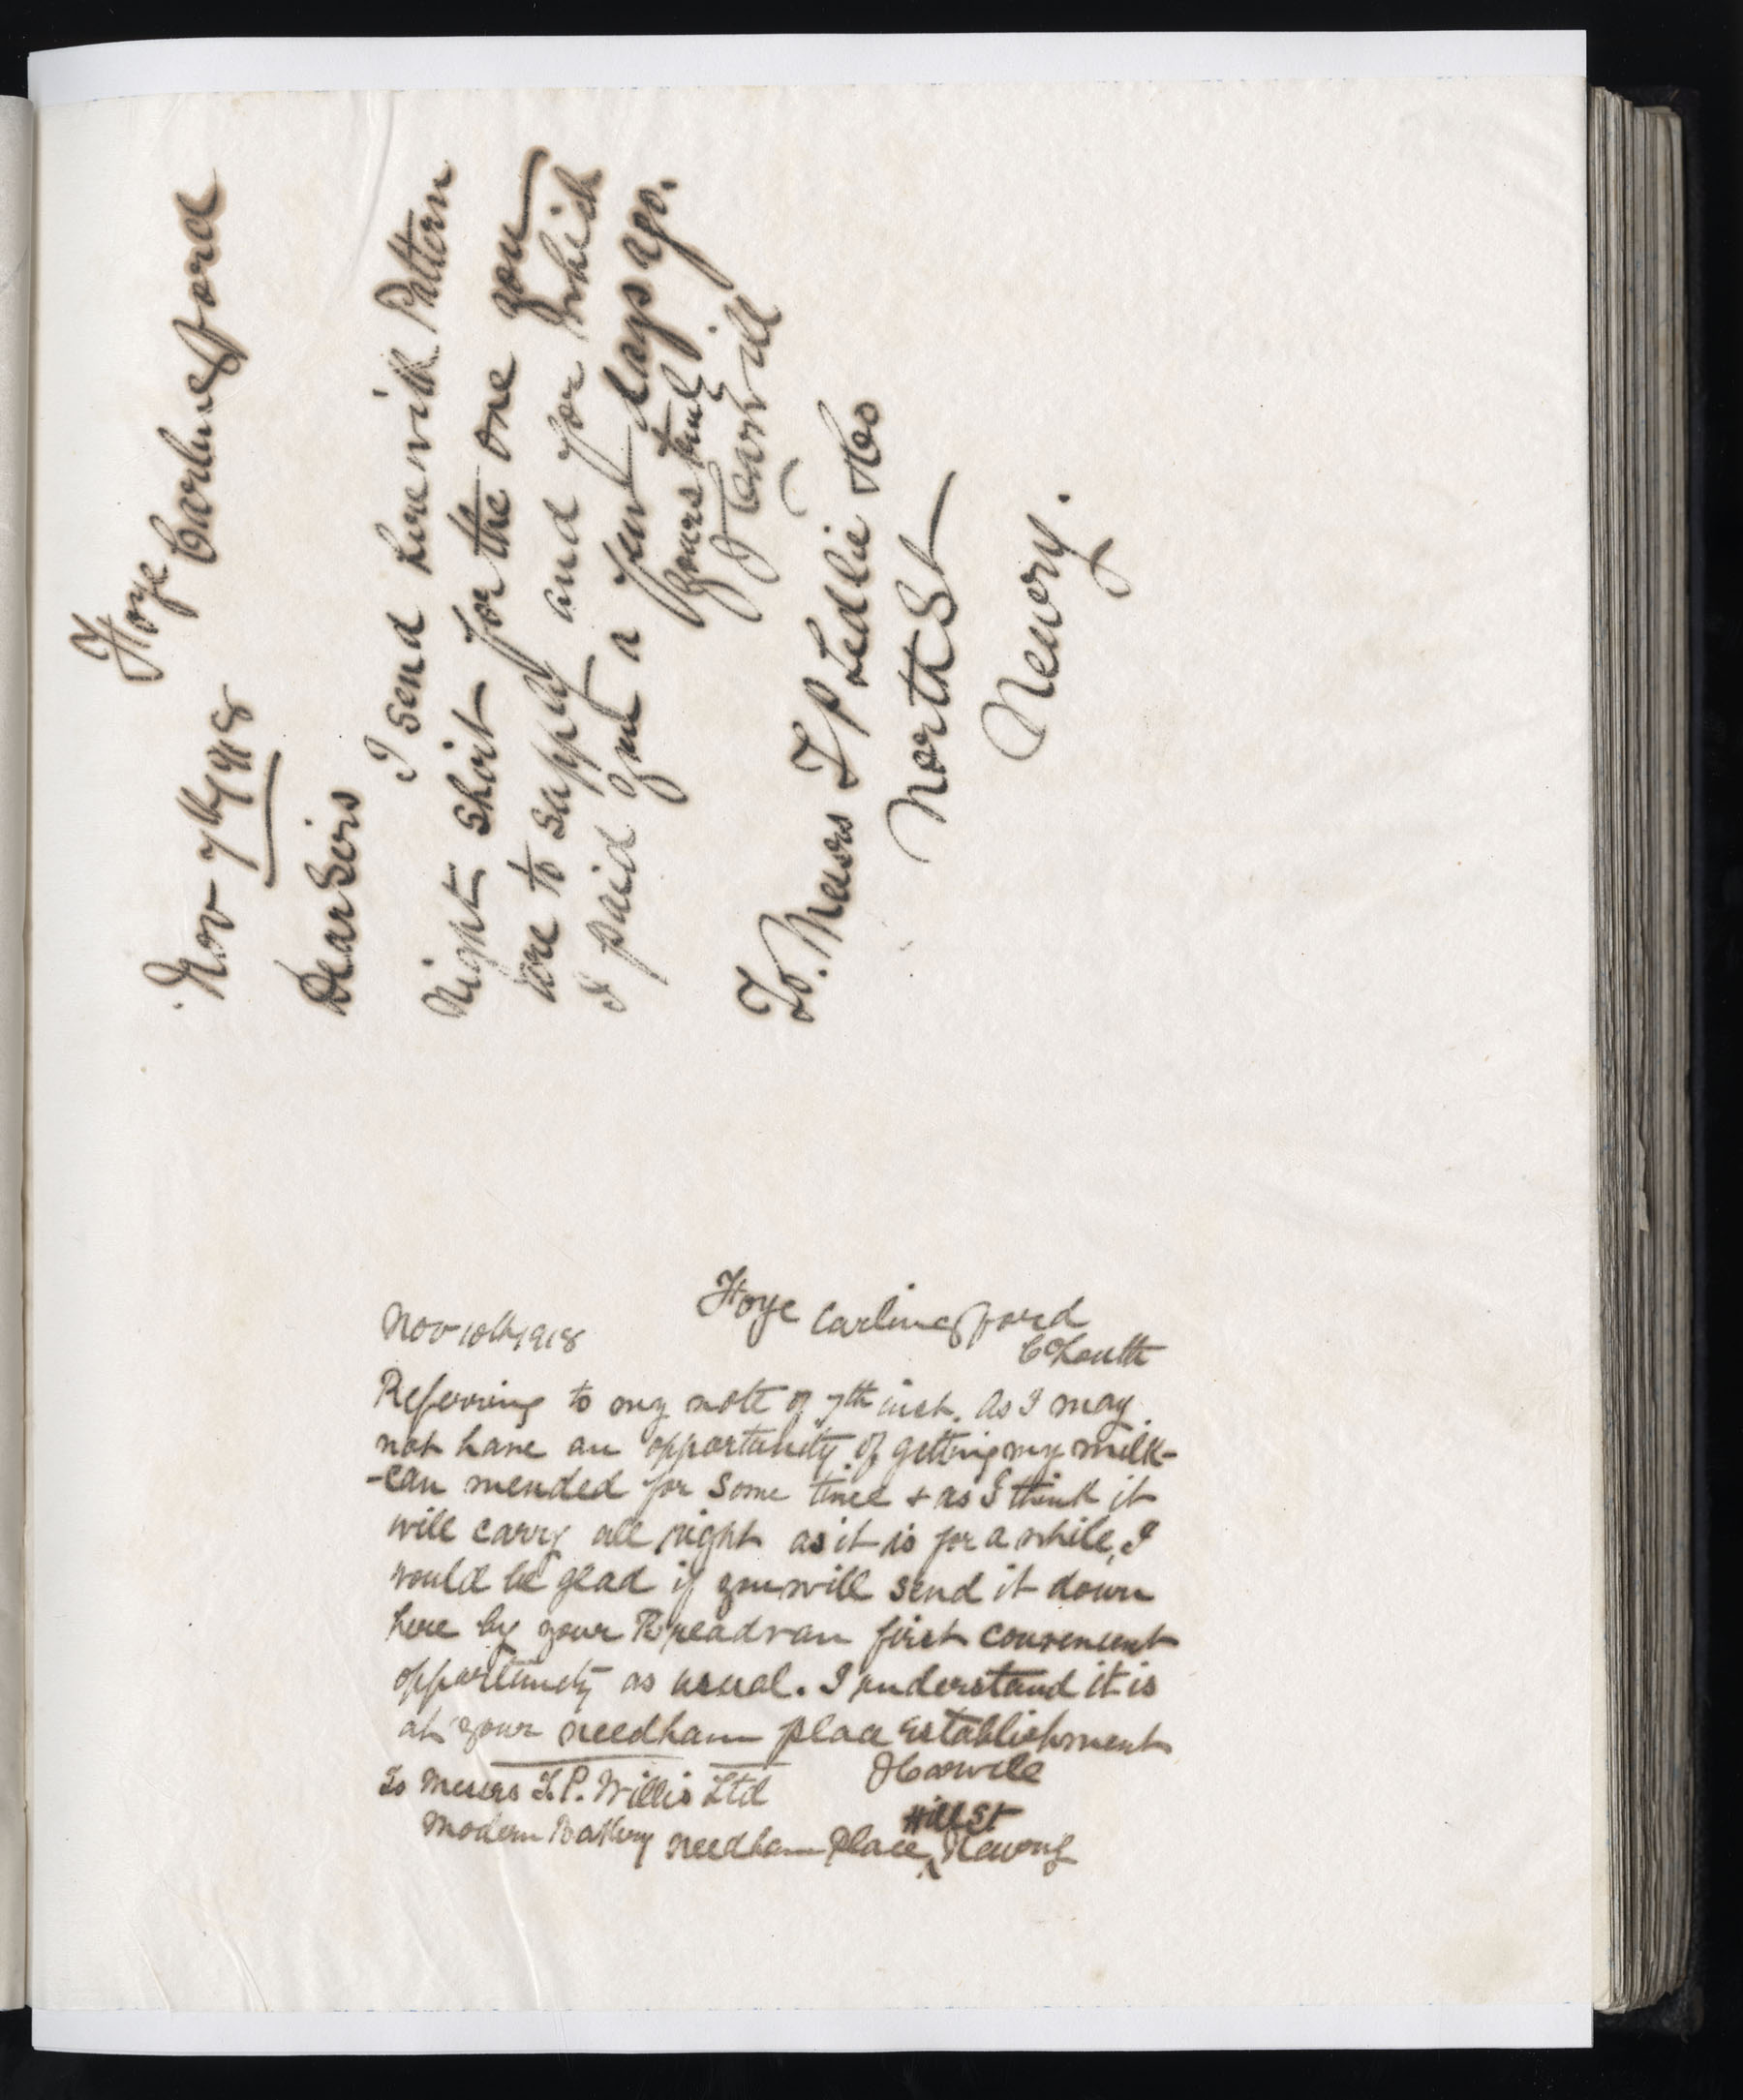 Foye Carlingford
Nov 7th 1918
Dear Sirs
I send herewith Pattern
Night Shirt for the one you
are to supply and for which
I paid you a few days ago.
yours truly
J Carvill
To. Messrs T P Ledlie &Co
North St
Newry.
Foye Carlingford
Nov 10th 1918
Co Louth
Referring to my note of 7th inst. As I may
not have an opportunity of getting my milk-
-can mended for some time & as I think it
will carry all right as it is for a while, I
would be glad if you will send it down
here by your Breadvan first convenient
opportunity as usual. I understand it is
at your needham place establishment
J Carvill
To Messrs T.P. Willis Ltd
Hill St
Modern Bakery needham Place ^ Newry